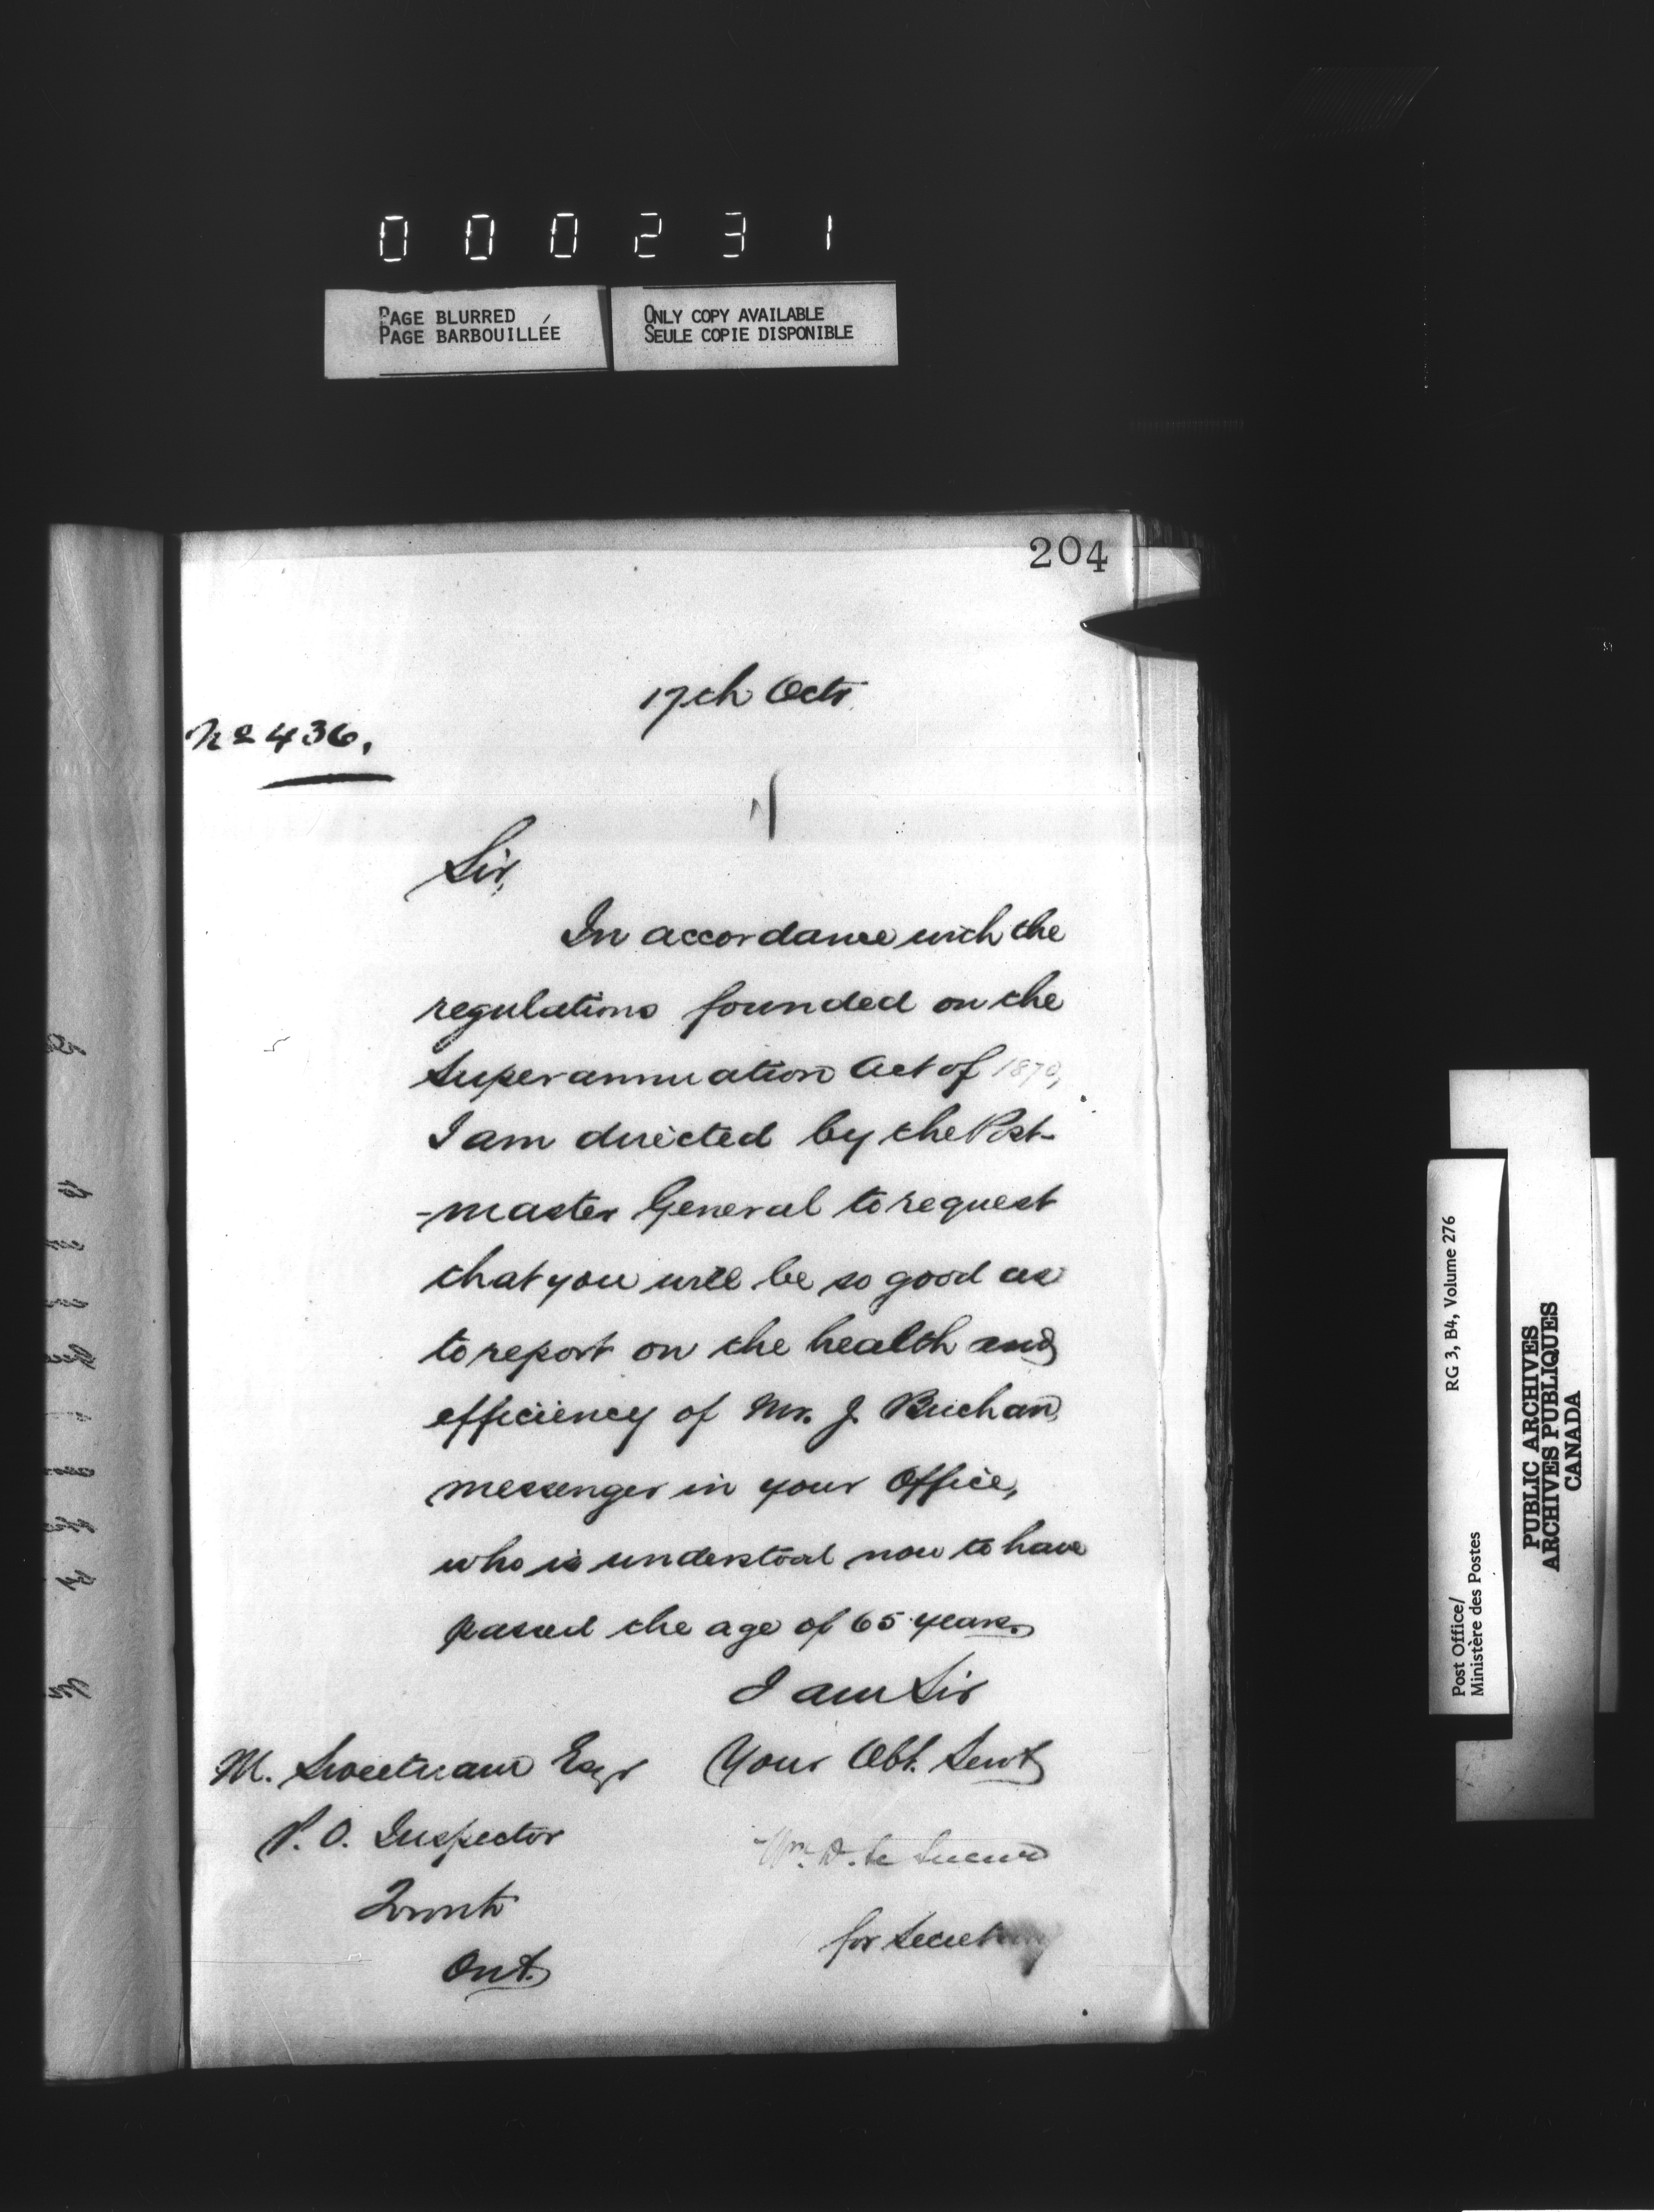 000231
PAGE BLURRED
PAGE BARBOUILLÉE
ONLY COPY AVAILABLE
SEULE COPIE DISPONIBLE
204
17th Octr
No 436.
Sir,
In accordance with the
regulations founded on the
Superannuation Act of 1870,
I am directed by the Post-
-master General to request
that you will be so good as
to report on the health and
efficiency of Mr. J. Buchan,
messenger in your Office,
who is understood now to have
passed the age of 65 years.
I am Sir
Your Obt. Servt
M. Sweetnam Esqr
P. O. Inspector
Toronto
Ont.
Wm. D. Le Sueur
for Secretary
RG 3, B4, Volume 276
Post Office/
Ministère des Postes
PUBLIC ARCHIVES
ARCHIVES PUBLIQUES
CANADA